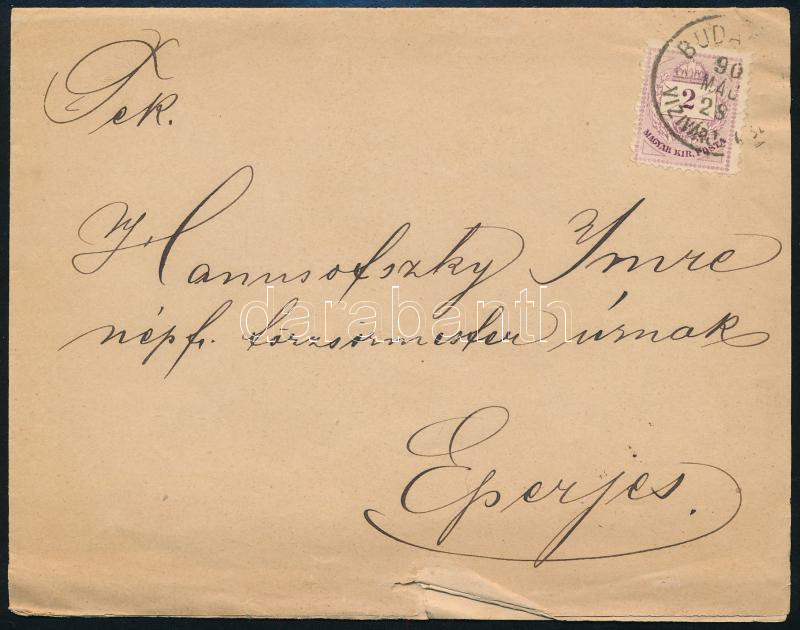 Tek.
BUDA
90
MÁJ
28
VIZIVÁROS
2
MAGYAR KIR. POSTA
Hanusofszky Imre
népf. törzsőrmester úrnak
darabanth
Eperjes.